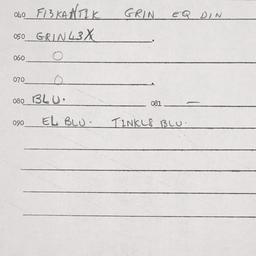 040 FIBKANTIK GRIN EQ DIN
050 GRINL3X
060 O
070 O
080 BLU. 081 —
090 EL BLU. TINKLS BLU.